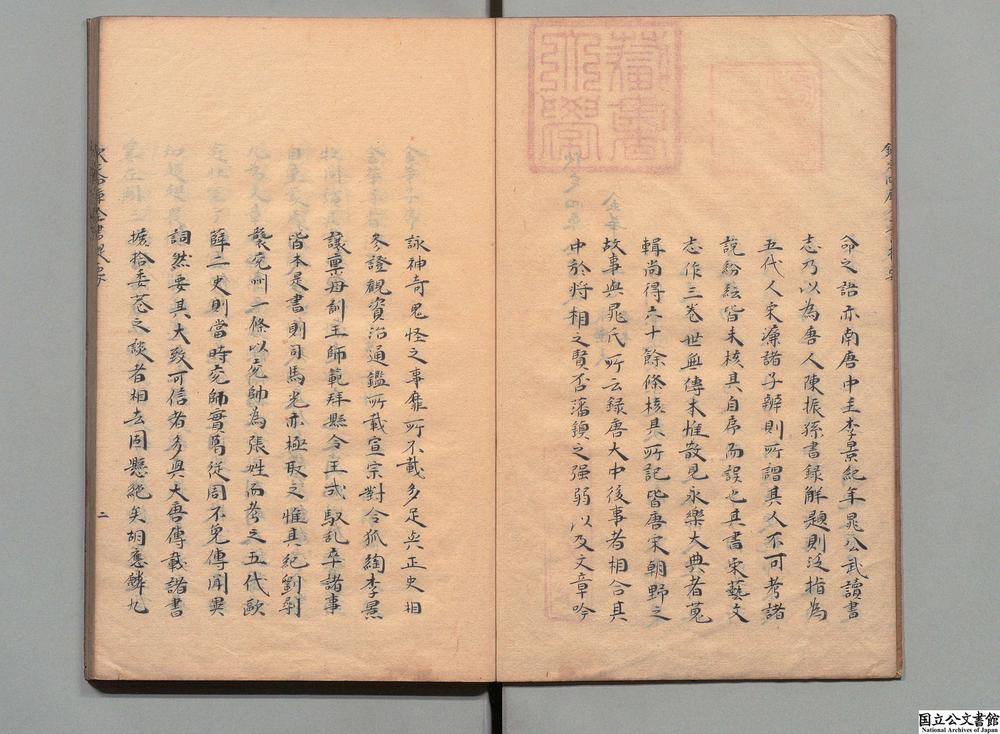 命之語亦南唐中主李景紀年晁公武讀書
志乃以為唐人陳振孫書録解題則泛指為
五代人宋濂諸子辨則所謂其人不可考諸
說紛紜皆未核其自序而誤也其書宋藝文
志作三卷世無傳本惟散見永樂大典者蒐
輯尚得六十餘條核其所記皆唐末朝野之
故事與晁氏所云録唐大中後事者相合其
中於將相之賢否藩鎮之强弱以及文章吟
詠神奇鬼怪之事靡所不載多足與正史相
叅證觀資治通鑑所載宣宗對令狐綯李景
讓稟母訓王師範拜縣令王式馭乱卒諸事
皆本是書則司馬光亦極取之惟其紀劉鄩
襲兖州一條以兖帥為張姓而考之五代歐
薛二史則當時兖師實葛從周不免傳聞異
詞然要其大致可信者多與大唐傳載諸書
摭拾委巷之談者相去固懸絶矣胡應麟九
二
藏書
國立公文書館
National Archives of Japan